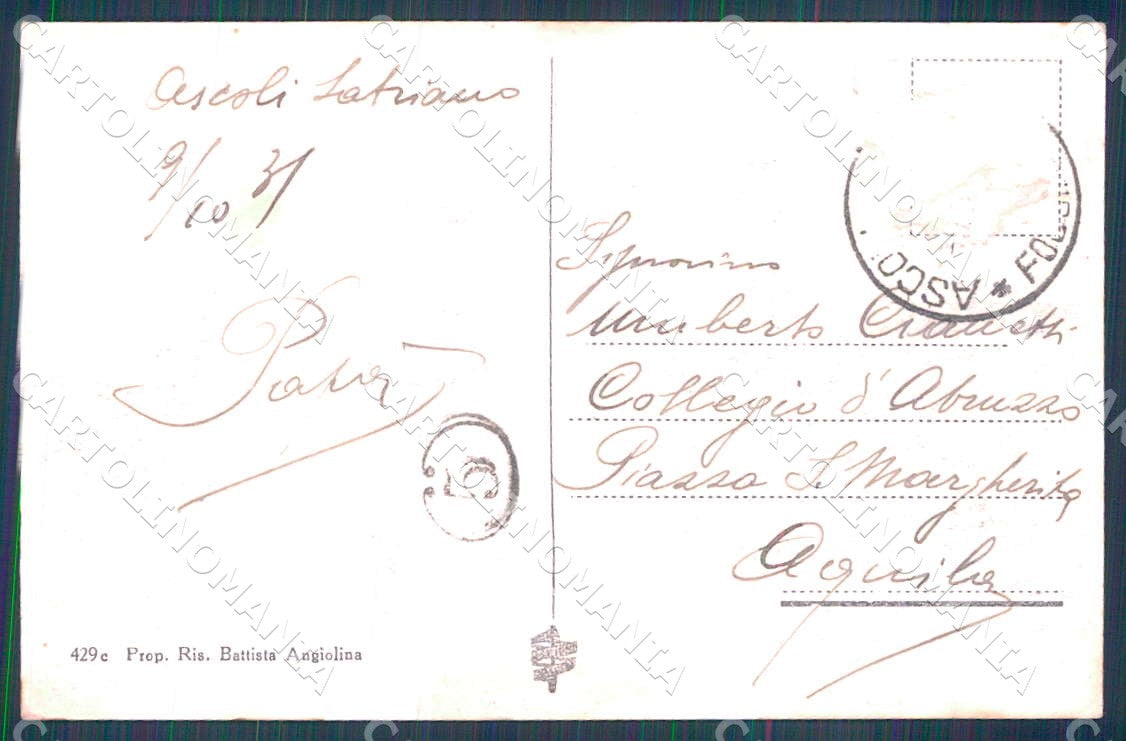 Ascoli Satriano
9/10 31
Papà
429c Prop. Ris. Battista Angiolina
ASCO
FOGGI
Signorino
Umberto
Collegio d'Abruzzo
Piazza S. Margherita
Aquila
CARTOLINOMANIA